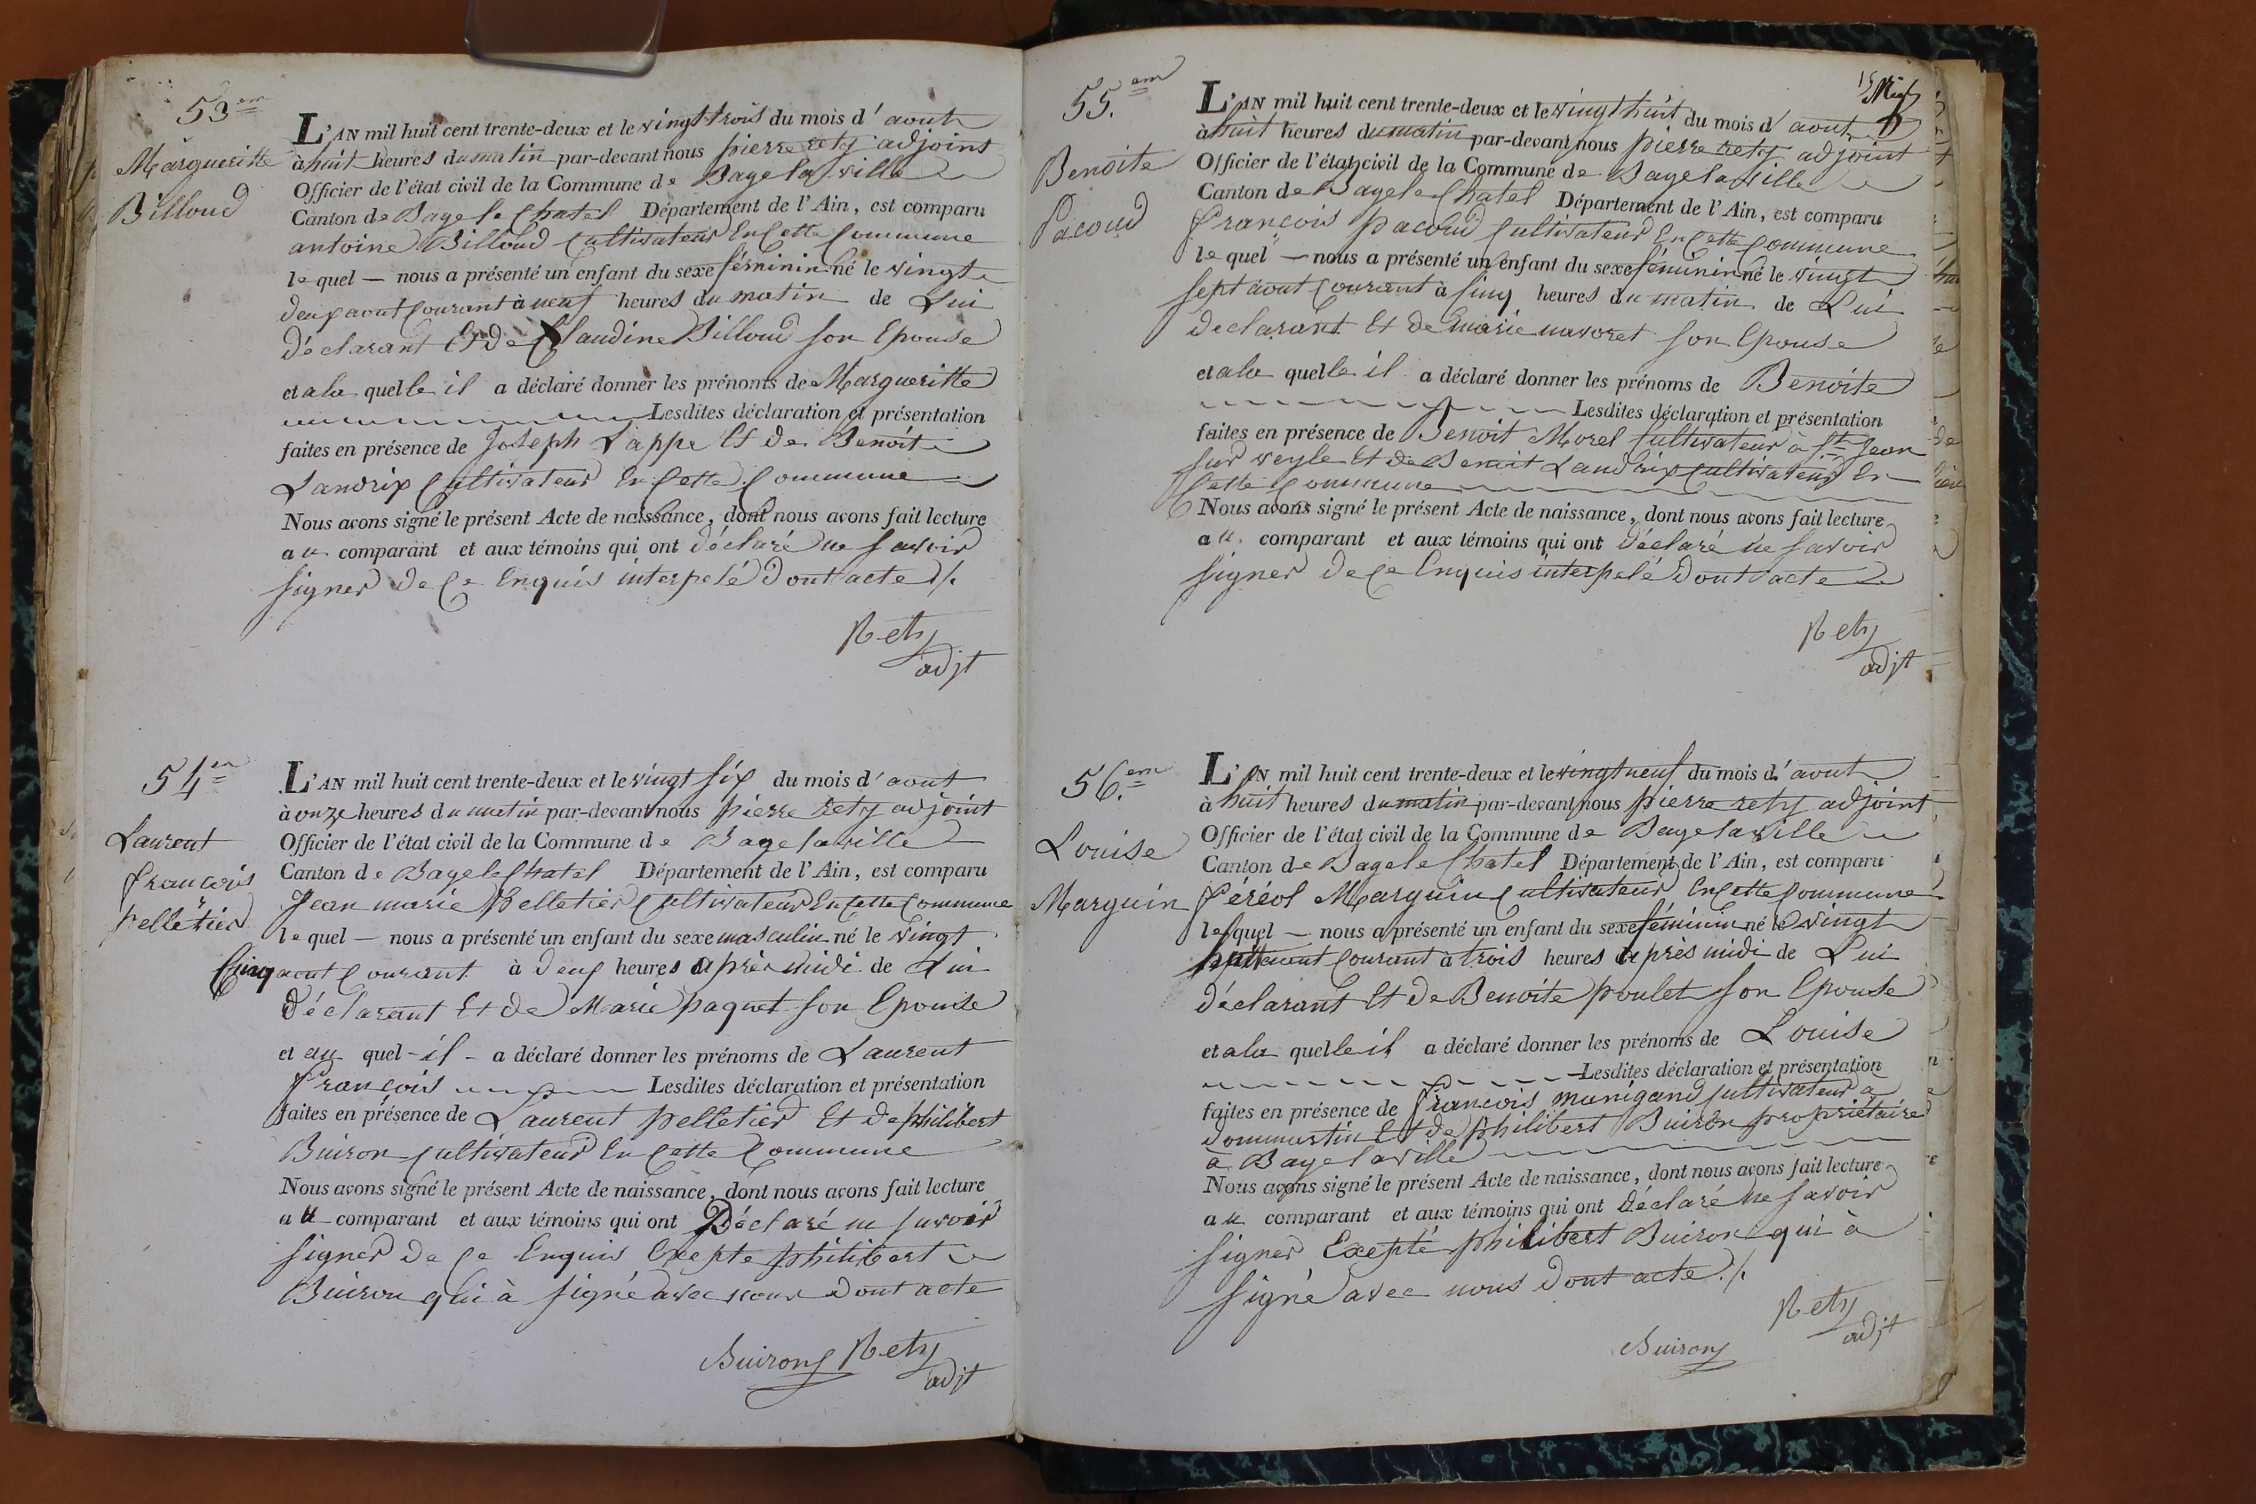 53em
Margueritte
Billoud
L'AN mil huit cent trente-deux et le vingt trois du mois d'aout
à huit heures du matin par-devant nous pierre rety adjoint
Officier de l'état civil de la Commune de Bage la ville
Canton de Bage le Chatel Département de l'Ain, est comparu
antoine Billoud Cultivateur En Cette Commune
le quel — nous a présenté un enfant du sexe féminin né le vingt
deux aout Courant à neuf heures du matin de Lui
déclarant Et de Claudine Billoud son Epouse
et a la quelle il a déclaré donner les prénoms de Margueritte
Lesdites déclaration et présentation
faites en présence de Joseph Lappe Et de Benoit
Landrix Cultivateur En Cette Commune
Nous avons signé le présent Acte de naissance, dont nous avons fait lecture
au comparant et aux témoins qui ont déclaré ne savoir
signer de Ce Enquis interpelé dont acte ./.
Rety
adjt
54em
Laurent
françois
pelletier
L'AN mil huit cent trente-deux et le vingt six du mois d'aout
à onze heures du matin par-devant nous pierre rety adjoint
Officier de l'état civil de la Commune de Bage la ville
Canton de Bage le Chatel Département de l'Ain, est comparu
Jean marie Pelletier Cultivateur En Cette Commune
le quel — nous a présenté un enfant du sexe masculin né le vingt
Cinq aout Courant à deux heures après midi de Lui
déclarant Et de Marie paquet son Epouse
et au quel - il - a déclaré donner les prénoms de Laurent
françois Lesdites déclaration et présentation
faites en présence de Laurent pelletier Et de philibert
Buiron Cultivateur En Cette Commune
Nous avons signé le présent Acte de naissance, dont nous avons fait lecture
au comparant et aux témoins qui ont Déclaré ne savoir
signer de Ce Enquis Exepte philibert
Buiron qui à signé avec nous dont acte
Buiron Rety
adjt
55.em
Benoite
Pacoud
L'AN mil huit cent trente-deux et le vingt huit du mois d'aout
à huit heures du matin par-devant nous pierre rety adjoint
Officier de l'état civil de la Commune de Bage la ville
Canton de Bage le Chatel Département de l'Ain, est comparu
François pacoud Cultivateur En Cette Commune
le quel — nous a présenté un enfant du sexe féminin né le vingt
sept aout Courant à Cinq heures du matin de Lui
declarant Et de marie mavoret son Epouse
et a la quelle il a déclaré donner les prénoms de Benoite
Lesdites déclaration et présentation
faites en présence de Benoit Morel Cultivateur à St Jean
sur veyle Et de Benoit Landrix Cultivateur En
Cette Commune
Nous avons signé le présent Acte de naissance, dont nous avons fait lecture
au comparant et aux témoins qui ont déclaré ne savoir
signer de Ce Enquis interpelé dont acte
Rety
adjt
56.em
Louise
Marguin
L'AN mil huit cent trente-deux et le vingt neuf du mois d'aout
à huit heures du matin par-devant nous pierre rety adjoint
Officier de l'état civil de la Commune de Bage la ville
Canton de Bage le Chatel Département de l'Ain, est comparu
féréol Marguin Cultivateur En Cette Commune
le quel — nous a présenté un enfant du sexe féminin né le vingt
aout Courant à trois heures après midi de Lui
déclarant Et de Benoite poulet son Epouse
et a la quelle il a déclaré donner les prénoms de Louise
Lesdites déclaration et présentation
faites en présence de françois manigand Cultivateur a
dommartin Et de philibert Buiron propriétaire
à Bage la ville
Nous avons signé le présent Acte de naissance, dont nous avons fait lecture
au comparant et aux témoins qui ont déclaré ne savoir
signer Exepté philibert Buiron qui à
signé avec nous dont acte ./.
Rety
adjt
Buiron